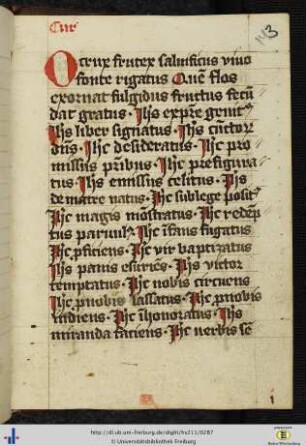 Cur
143
O crux frutex saluificus viuo
fonte rigatus Quē flos
exornat fulgidus fructus fecū
dat gratus · Ihs ex pr̄e genit9
Ihs liber signatus · Ihs cūctor
dn̄s · Ihc desideratus · Ihc pro
missus pr̄ibus · Ihc prefigura
tus · Ihs emissus celitus · Ihs
de matre natus · Ihc sub lege posit9
Ihc magis mōstratus · Ihc redēp
tus paruul9 · Ihc ī fans fugatus
Ihc pficiens · Ihc vir baptizatus
Ihs panis esuriēs · Ihs victor
temptatus · Ihc nobis circuens
Ihc p nobis lassatus · Ihc p nobis
indigens · Ihc īhonoratus · Ihs
miranda faciens · Ihc verbis sē
http://dl.ub.uni-freiburg.de/diglit/hs211/0287
© Universitätsbibliothek Freiburg
Baden-Württemberg